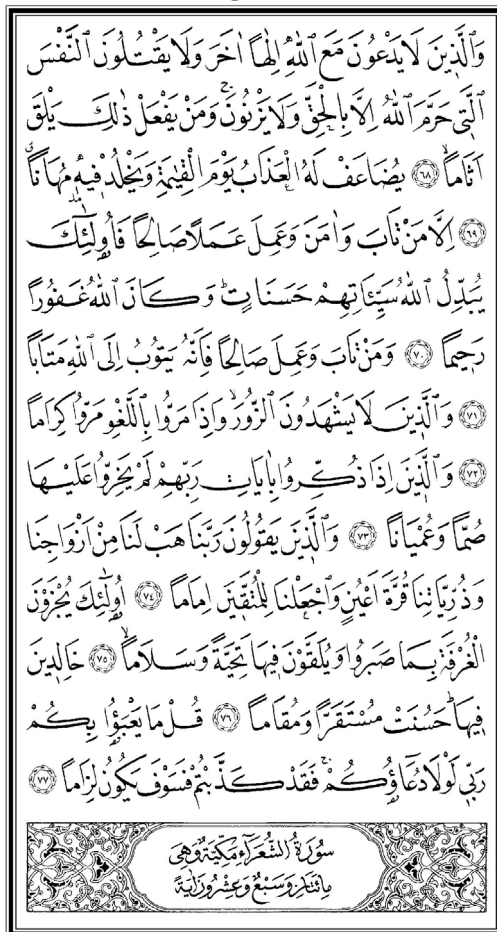 وَالَّذ۪ينَ لَا يَدْعُونَ مَعَ اللّٰهِ اِلٰهًا اٰخَرَ وَلَا يَقْتُلُونَ النَّفْسَ
الَّت۪ي حَرَّمَ اللّٰهُ اِلَّا بِالْحَقِّ وَلَا يَزْنُونَۚ وَمَنْ يَفْعَلْ ذٰلِكَ يَلْقَ
اَثَامًاۙ ﴿٦٨﴾ يُضَاعَفْ لَهُ الْعَذَابُ يَوْمَ الْقِيٰمَةِ وَيَخْلُدْ ف۪يه۪ مُهَانًاۗ
﴿٦٩﴾ اِلَّا مَنْ تَابَ وَاٰمَنَ وَعَمِلَ عَمَلًا صَالِحًا فَاُو۬لٰٓئِكَ
يُبَدِّلُ اللّٰهُ سَيِّـَٔاتِهِمْ حَسَنَاتٍۜ وَكَانَ اللّٰهُ غَفُورًا
رَح۪يمًا ﴿٧٠﴾ وَمَنْ تَابَ وَعَمِلَ صَالِحًا فَاِنَّهُ يَتُوبُ اِلَى اللّٰهِ مَتَابًا
﴿٧١﴾ وَالَّذ۪ينَ لَا يَشْهَدُونَ الزُّورَۙ وَاِذَا مَرُّوا بِاللَّغْوِ مَرُّوا كِرَامًا
﴿٧٢﴾ وَالَّذ۪ينَ اِذَا ذُكِّرُوا بِاٰيَاتِ رَبِّهِمْ لَمْ يَخِرُّوا عَلَيْهَا
صُمًّا وَعُمْيَانًا ﴿٧٣﴾ وَالَّذ۪ينَ يَقُولُونَ رَبَّنَا هَبْ لَنَا مِنْ اَزْوَاجِنَا
وَذُرِّيَّاتِنَا قُرَّةَ اَعْيُنٍ وَاجْعَلْنَا لِلْمُتَّق۪ينَ اِمَامًا ﴿٧٤﴾ اُو۬لٰٓئِكَ يُجْزَوْنَ
الْغُرْفَةَ بِمَا صَبَرُوا وَيُلَقَّوْنَ ف۪يهَا تَحِيَّةً وَسَلَامًاۙ ﴿٧٥﴾ خَالِد۪ينَ
ف۪يهَاۜ حَسُنَتْ مُسْتَقَرًّا وَمُقَامًا ﴿٧٦﴾ قُلْ مَا يَعْبَؤُ۬ا بِكُمْ
رَبّ۪ي لَوْلَا دُعَٓاؤُ۬كُمْۚ فَقَدْ كَذَّبْتُمْ فَسَوْفَ يَكُونُ لِزَامًا ﴿٧٧﴾
سُورَةُ الشُّعَرَٓاءِ مَكِّيَّةٌ وَهِيَ
مِائَتَانِ وَسَبْعٌ وَعِشْرُونَ اٰيَةً